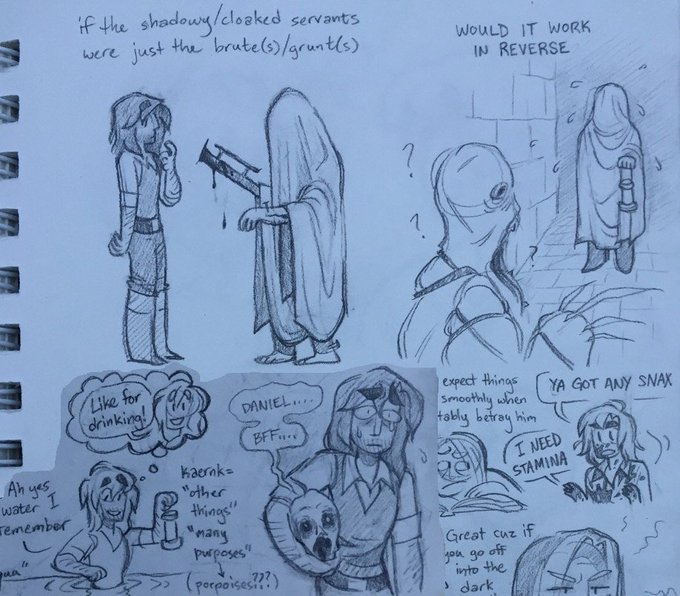 if the shadowy/cloaked servants
were just the brute(s)/grunt(s)
WOULD IT WORK
IN REVERSE
?
?
Like for
drinking!
Ah yes,
water I
remember
DANIEL....
BFF....
Kaernk=
"other
things"
"many
purposes"
(porpoises???)
expect things
smoothly when
tably betray him
YA GOT ANY SNAX
I NEED
STAMINA
Great cuz if
you go off
into the
dark